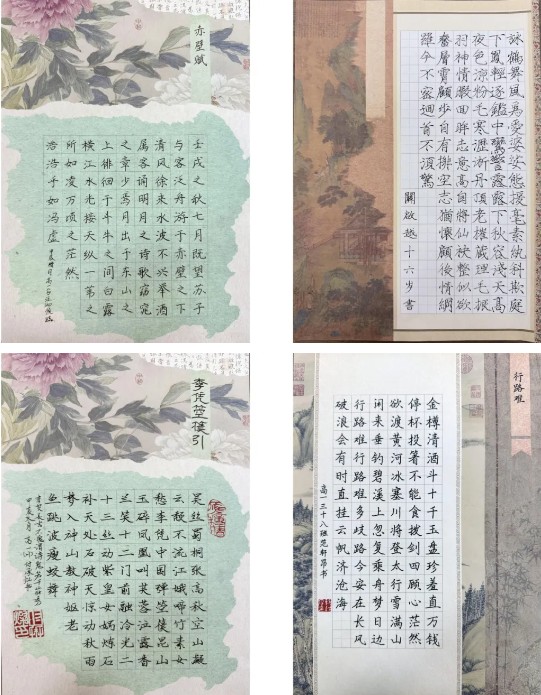 赤壁賦
壬戌之秋七月既望苏子
与客泛舟游于赤壁之下
清风徐来水波不兴举酒
属客诵明月之诗歌窈窕
之章少焉月出于东山之
上徘徊于斗牛之间白露
横江水光接天纵一苇之
所如凌万顷之茫然
浩浩乎如冯虚
詠鶴舞風為愛婆娑態援毫素紈斜欺庭
下蹴輕逐鑑中鸞警露秋容淺天高
夜色涼粉毛寒瀝淅丹頂老摧藏理毛振
羽神情回眸志意高自將仙袂整似欲
層霄顧步自有排空志猶懷顧後情網
羅今不密迴首不須驚
關啟越十六岁書
李凭箜篌引
吴丝蜀桐张高秋空山凝
云颓不流江娥啼竹素女
愁李凭中国弹箜篌昆山
玉碎凤凰叫芙蓉泣露香
兰笑十二门前融冷光二
十三丝动紫皇女娲炼石
补天处石破天惊动秋雨
梦入神山教神妪老
鱼跳波瘦蛟舞
行路难
金樽清酒斗十千玉盘珍羞直万钱
停杯投箸不能食拔剑四顾心茫然
欲渡黄河冰塞川将登太行雪满山
闲来垂钓碧溪上忽复乘舟梦日边
行路难行路难多歧路今安在长风
破浪会有时直挂云帆济沧海
高一三十八班范轩昂书